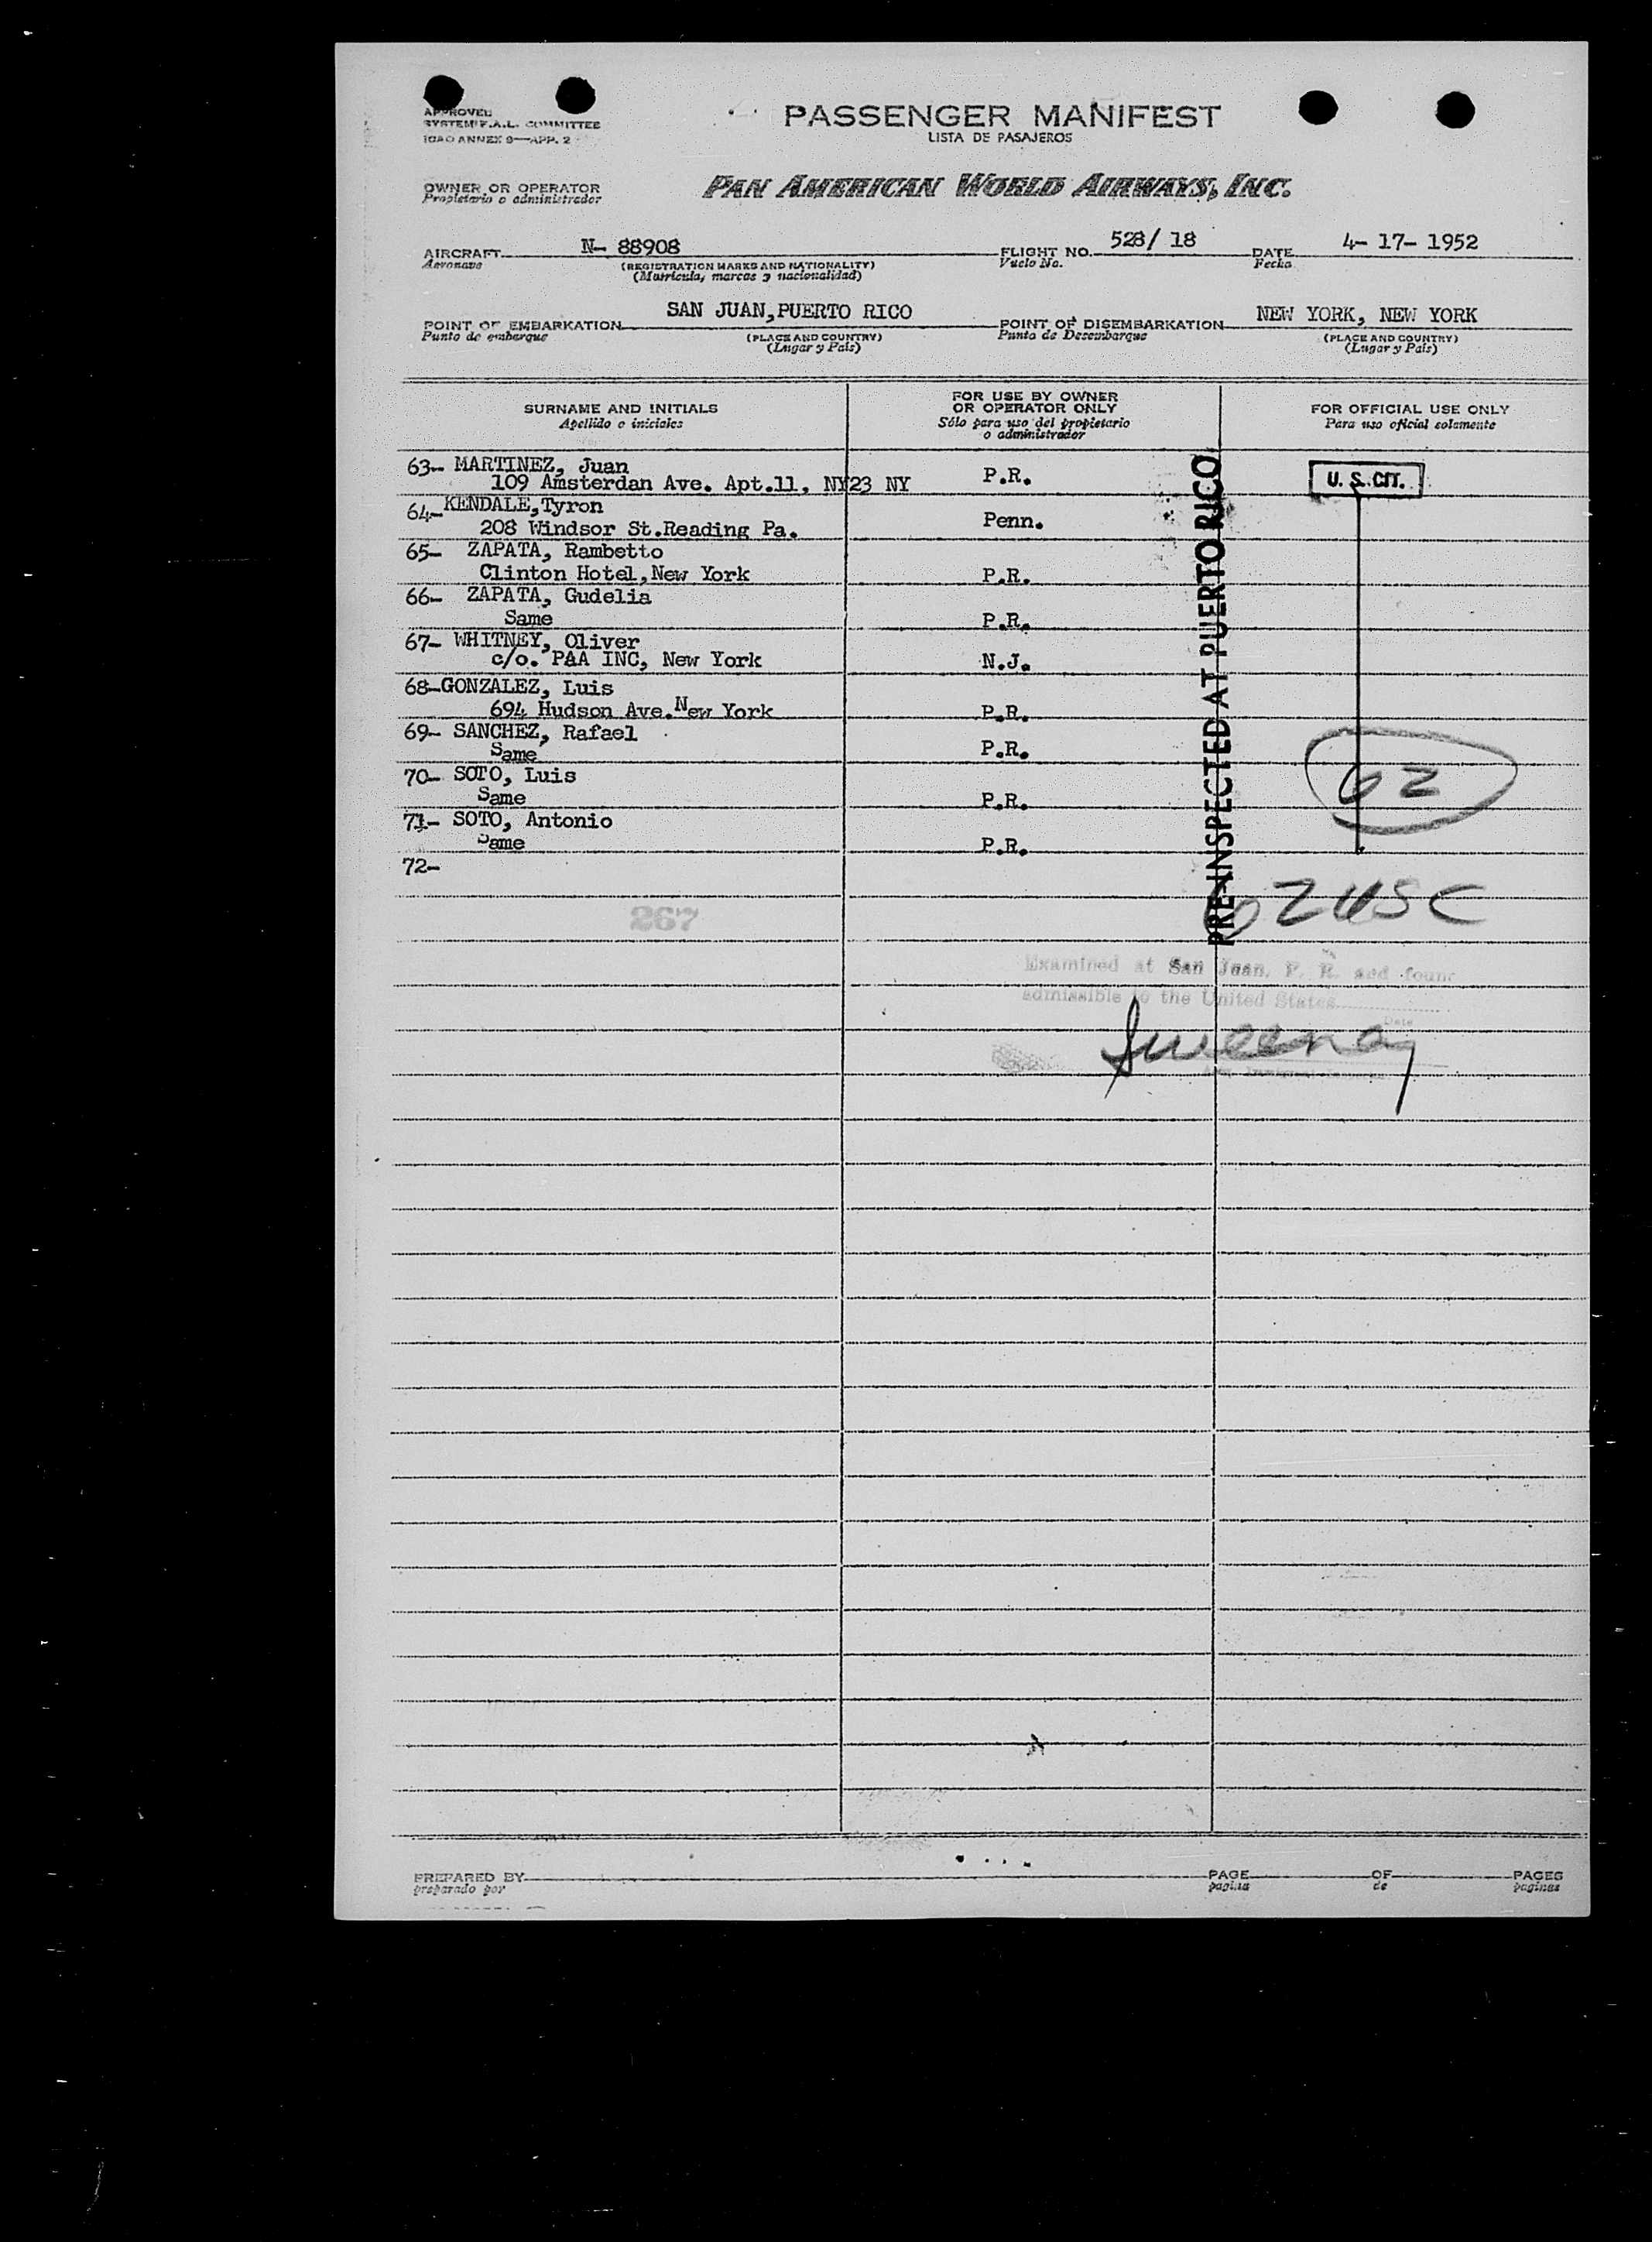 APPROVED
SYSTEM F.A.L. COMMITTEE
ICAO ANNEX 9—APP. 2
PASSENGER MANIFEST
LISTA DE PASAJEROS
OWNER OR OPERATOR
Propietario o administrador
PAN AMERICAN WORLD AIRWAYS, INC.
AIRCRAFT N- 88908 FLIGHT NO. 528/ 18 DATE 4- 17- 1952
Aeronave (REGISTRATION MARKS AND NATIONALITY) Vuelo No. Fecha
(Matricula, marcas y nacionalidad)
POINT OF EMBARKATION SAN JUAN,PUERTO RICO POINT OF DISEMBARKATION NEW YORK, NEW YORK
Punto de embarque (PLACE AND COUNTRY) Punto de Desembarque (PLACE AND COUNTRY)
(Lugar y País) (Lugar y País)
SURNAME AND INITIALS
Apellido e iniciales
FOR USE BY OWNER
OR OPERATOR ONLY
Sólo para uso del propietario
o administrador
FOR OFFICIAL USE ONLY
Para uso oficial solamente
63- MARTINEZ, Juan P.R. U. S. CIT.
109 Amsterdan Ave. Apt.11, NY23 NY
64-KENDALE,Tyron Penn.
208 Windsor St.Reading Pa.
65- ZAPATA, Rambetto
Clinton Hotel,New York P.R.
66- ZAPATA, Gudelia
Same P.R.
67- WHITNEY, Oliver
c/o. PAA INC, New York N.J.
68-GONZALEZ, Luis
694 Hudson Ave.New York P.R.
69- SANCHEZ, Rafael
Same P.R.
70- SOTO, Luis
Same P.R.
71- SOTO, Antonio
Same P.R.
72-
PRE-INSPECTED AT PUERTO RICO
62
62 USC
267
Examined at San Juan, P. R. and found
admissible to the United States
Date
Sweeney
PREPARED BY PAGE OF PAGES
preparado por pagina de paginas